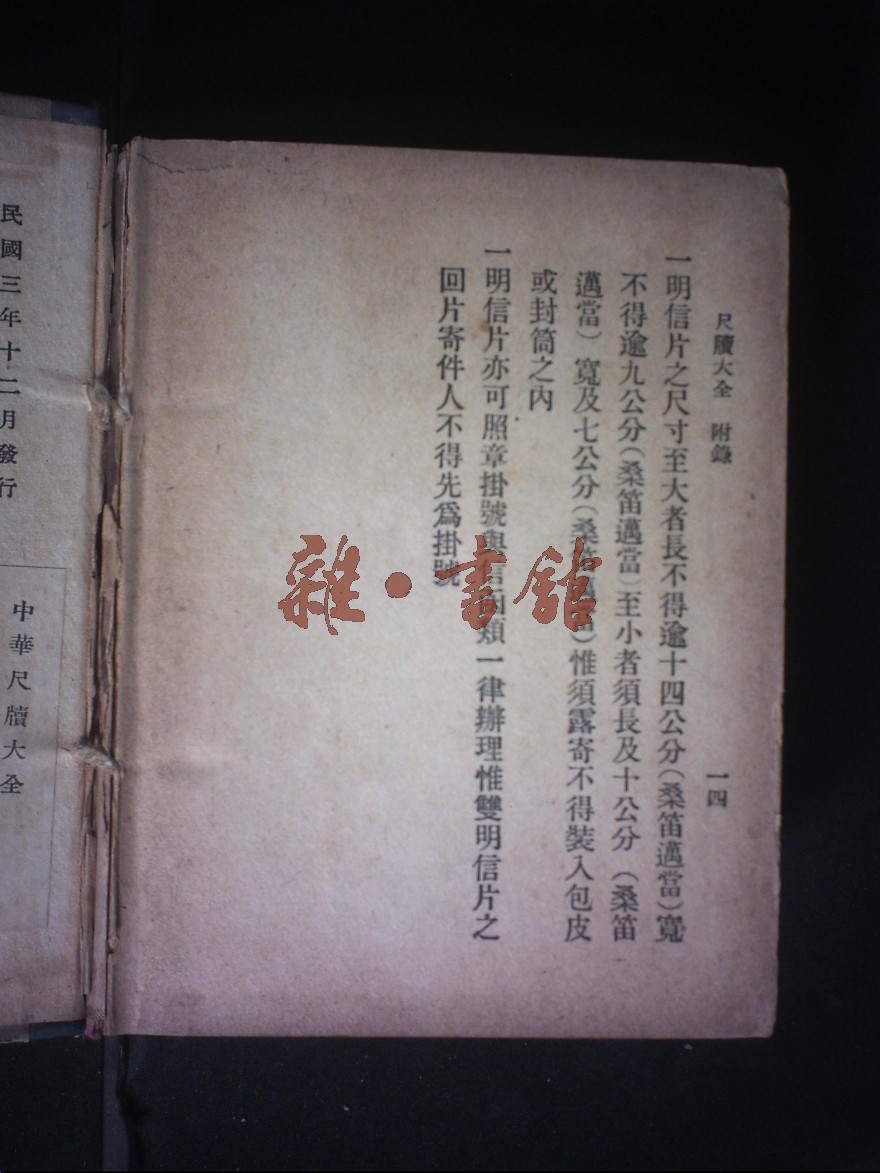 尺牘大全 附錄
一四
一明信片之尺寸至大者長不得逾十四公分(桑笛邁當)寬
不得逾九公分(桑笛邁當)至小者須長及十公分(桑笛
邁當) 寬及七公分(桑笛邁當)惟須露寄不得裝入包皮
或封筒之內
一明信片亦可照章掛號與信函類一律辦理惟雙明信片之
回片寄件人不得先爲掛號
雜·書館
民國三年十二月發行
中華尺牘大全